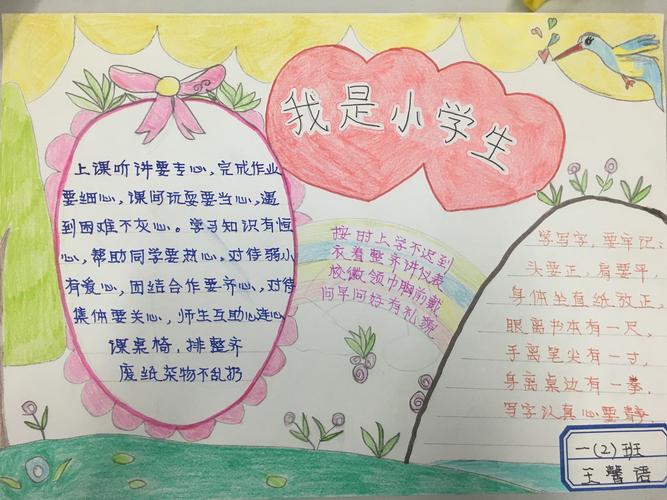 我是小学生
上课听讲要专心,完成作业
要细心,课间玩耍要当心,遇
到困难不灰心。学习知识有恒
心,帮助同学要热心,对待弱小
有爱心,团结合作要齐心,对待
集体要关心,师生互助心连心
课桌椅,排整齐
废纸杂物不乱扔
按时上学不迟到
衣着整齐讲仪表
校徽领巾胸前戴
问早问好有礼貌
学写字,要牢记、
头要正,肩要平,
身体坐直纸放正,
眼离书本有一尺,
手离笔尖有一寸,
身离桌边有一拳,
写字认真心要静,
一(2)班
王馨语